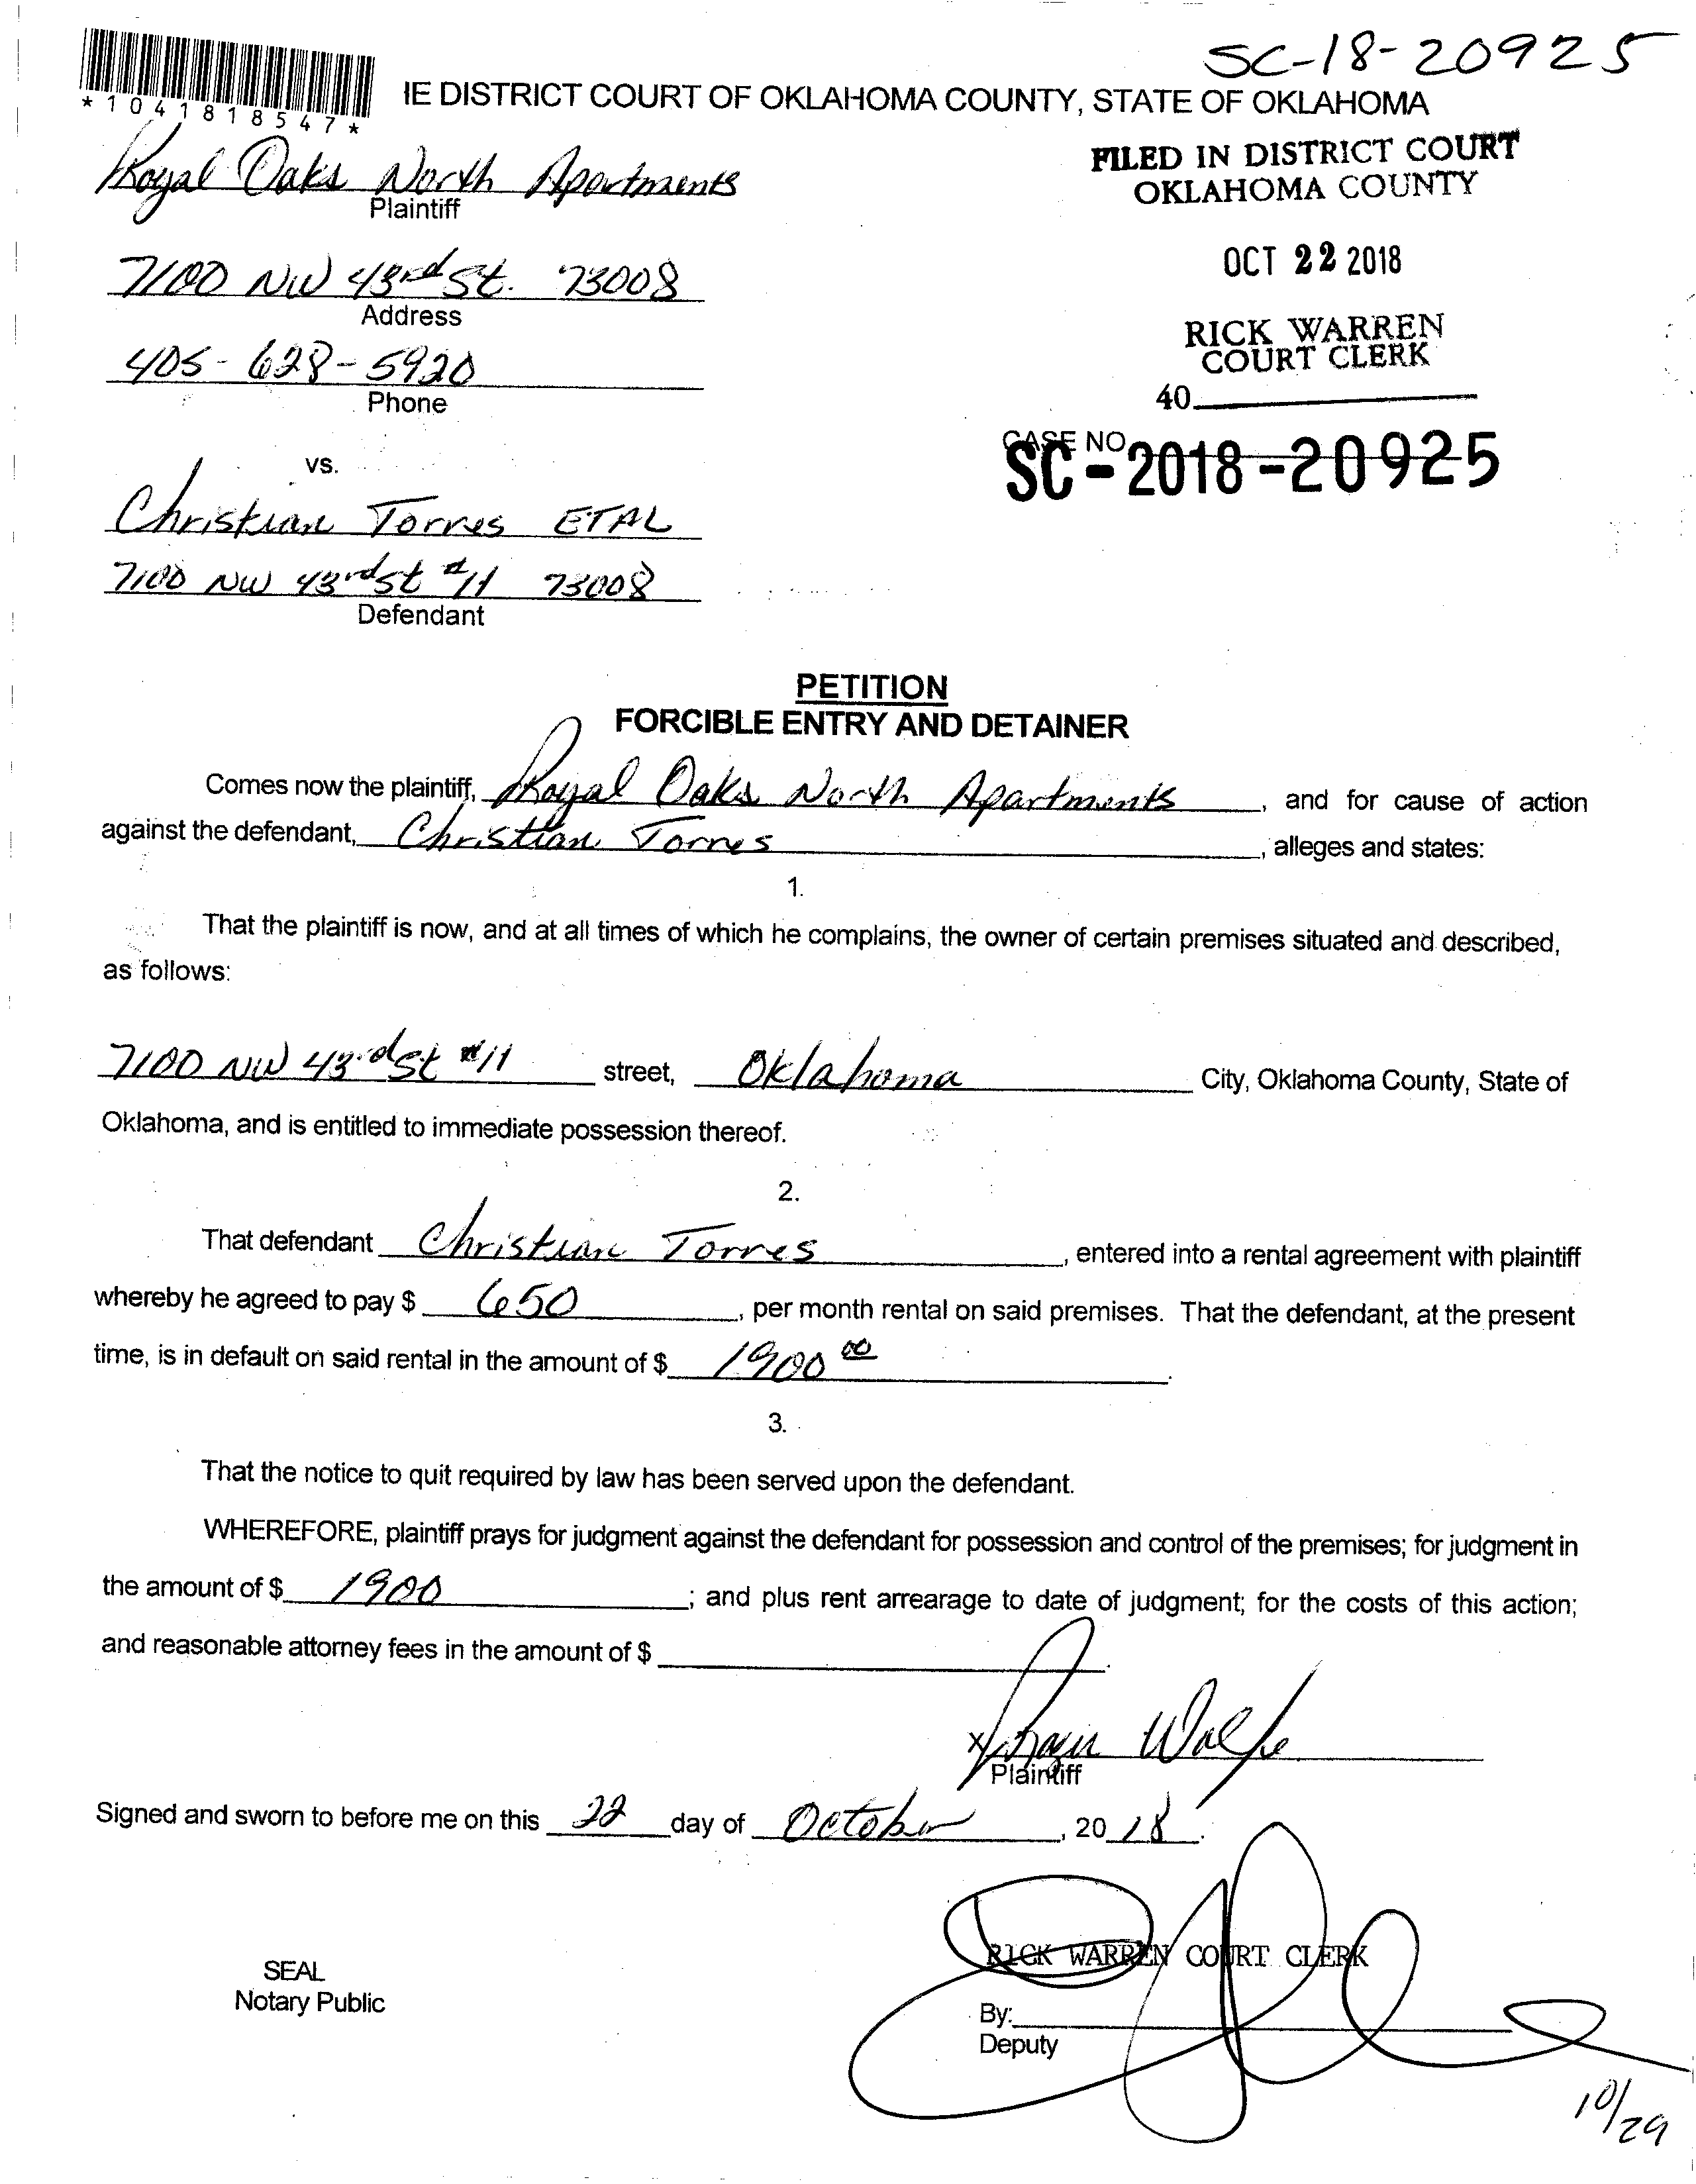 SC-18-20925
*1041818547*
IE DISTRICT COURT OF OKLAHOMA COUNTY, STATE OF OKLAHOMA
Royal Oaks North Apartments
Plaintiff
FILED IN DISTRICT COURT
OKLAHOMA COUNTY
7100 NW 43rd St. 73008
Address
OCT 22 2018
405-628-5920
Phone
RICK WARREN
COURT CLERK
40
vs.
CASE NO.
SC-2018-20925
Christian Torres ETAL
7100 NW 43rd St #11 73008
Defendant
PETITION
FORCIBLE ENTRY AND DETAINER
Comes now the plaintiff, Royal Oaks North Apartments, and for cause of action
against the defendant, Christian Torres, alleges and states:
1.
That the plaintiff is now, and at all times of which he complains, the owner of certain premises situated and described,
as follows:
7100 NW 43rd St #11 street, Oklahoma City, Oklahoma County, State of
Oklahoma, and is entitled to immediate possession thereof.
2.
That defendant Christian Torres, entered into a rental agreement with plaintiff
whereby he agreed to pay $ 650, per month rental on said premises. That the defendant, at the present
time, is in default on said rental in the amount of $ 1900 00.
3.
That the notice to quit required by law has been served upon the defendant.
WHEREFORE, plaintiff prays for judgment against the defendant for possession and control of the premises; for judgment in
the amount of $ 1900; and plus rent arrearage to date of judgment; for the costs of this action;
and reasonable attorney fees in the amount of $
X Wolfe
Plaintiff
Signed and sworn to before me on this 22 day of October, 2018.
RICK WARREN COURT CLERK
SEAL
Notary Public
By:
Deputy
10/29